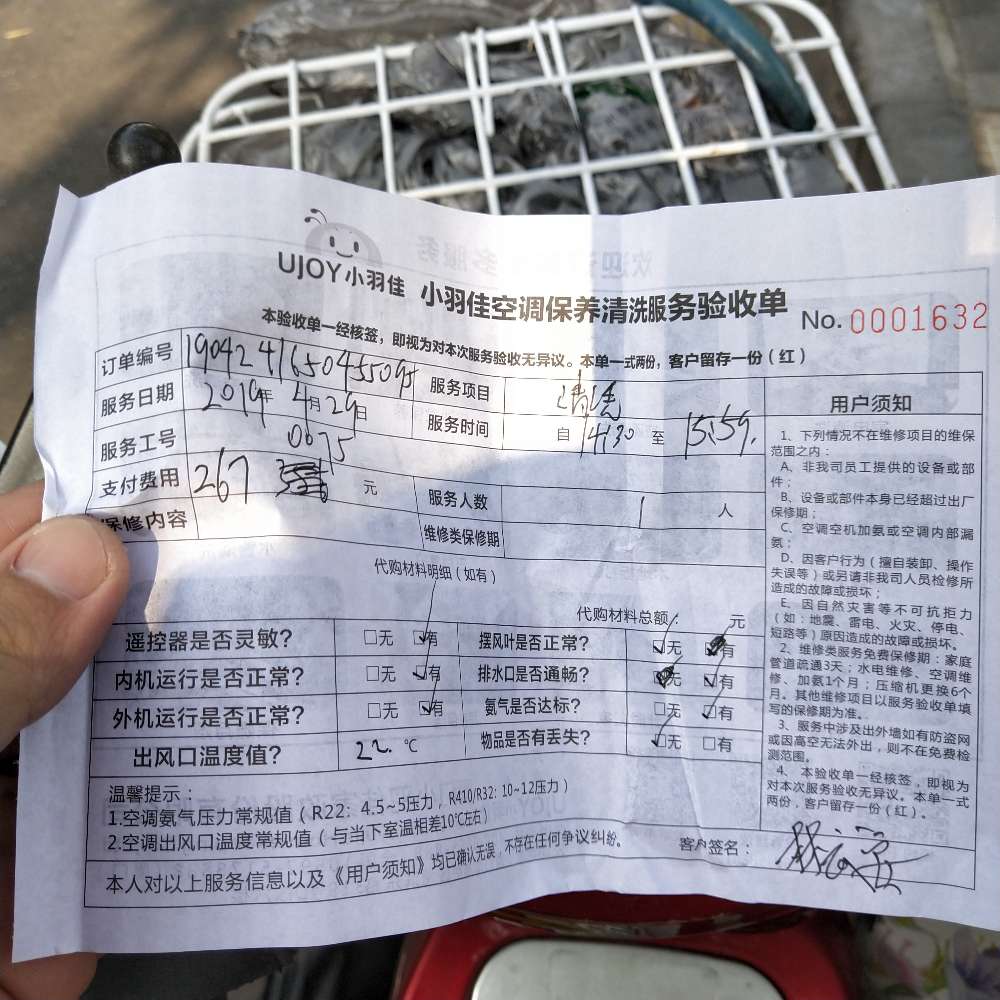 UJOY小羽佳 小羽佳空调保养清洗服务验收单 No. 0001632
本验收单一经核签，即视为对本次服务验收无异议。本单一式两份，客户留存一份（红）
订单编号 服务项目 清洗
服务日期 2019年 4月29日 服务时间 自 14:30 至 15:59.
服务工号 0675
支付费用 267 元 服务人数 1 人
保修内容 维修类保修期
代购材料明细（如有）
代购材料总额： 元
遥控器是否灵敏？ □无 □有 摆风叶是否正常？ □无 □有
内机运行是否正常？ □无 □有 排水口是否通畅？ □无 □有
外机运行是否正常？ □无 □有 氨气是否达标？ □无 □有
出风口温度值？ 22. ℃ 物品是否有丢失？ □无 □有
温馨提示：
1.空调氨气压力常规值（R22：4.5~5压力，R410/R32：10~12压力）
2.空调出风口温度常规值（与当下室温相差10℃左右）
本人对以上服务信息以及《用户须知》均已确认无误，不存在任何争议纠纷。 客户签名：
用户须知
1、下列情况不在维修项目的维保
范围之内：
A、非我司员工提供的设备或部
件；
B、设备或部件本身已经超过出厂
保修期；
C、空调空机加氨或空调内部漏
氨；
D、因客户行为（擅自装卸、操作
失误等）或另请非我司人员检修所
造成的故障或损坏；
E、因自然灾害等不可抗拒力
（如：地震、雷电、火灾、停电、
短路等）原因造成的故障或损坏。
2、维修类服务免费保修期：家庭
管道疏通3天；水电维修、空调维
修、加氨1个月；压缩机更换6个
月。其他维修项目以服务验收单填
写的保修期为准。
3、服务中涉及出外墙如有防盗网
或因高空无法外出，则不在免费检
测范围。
4、本验收单一经核签，即视为
对本次服务验收无异议。本单一式
两份，客户留存一份（红）。